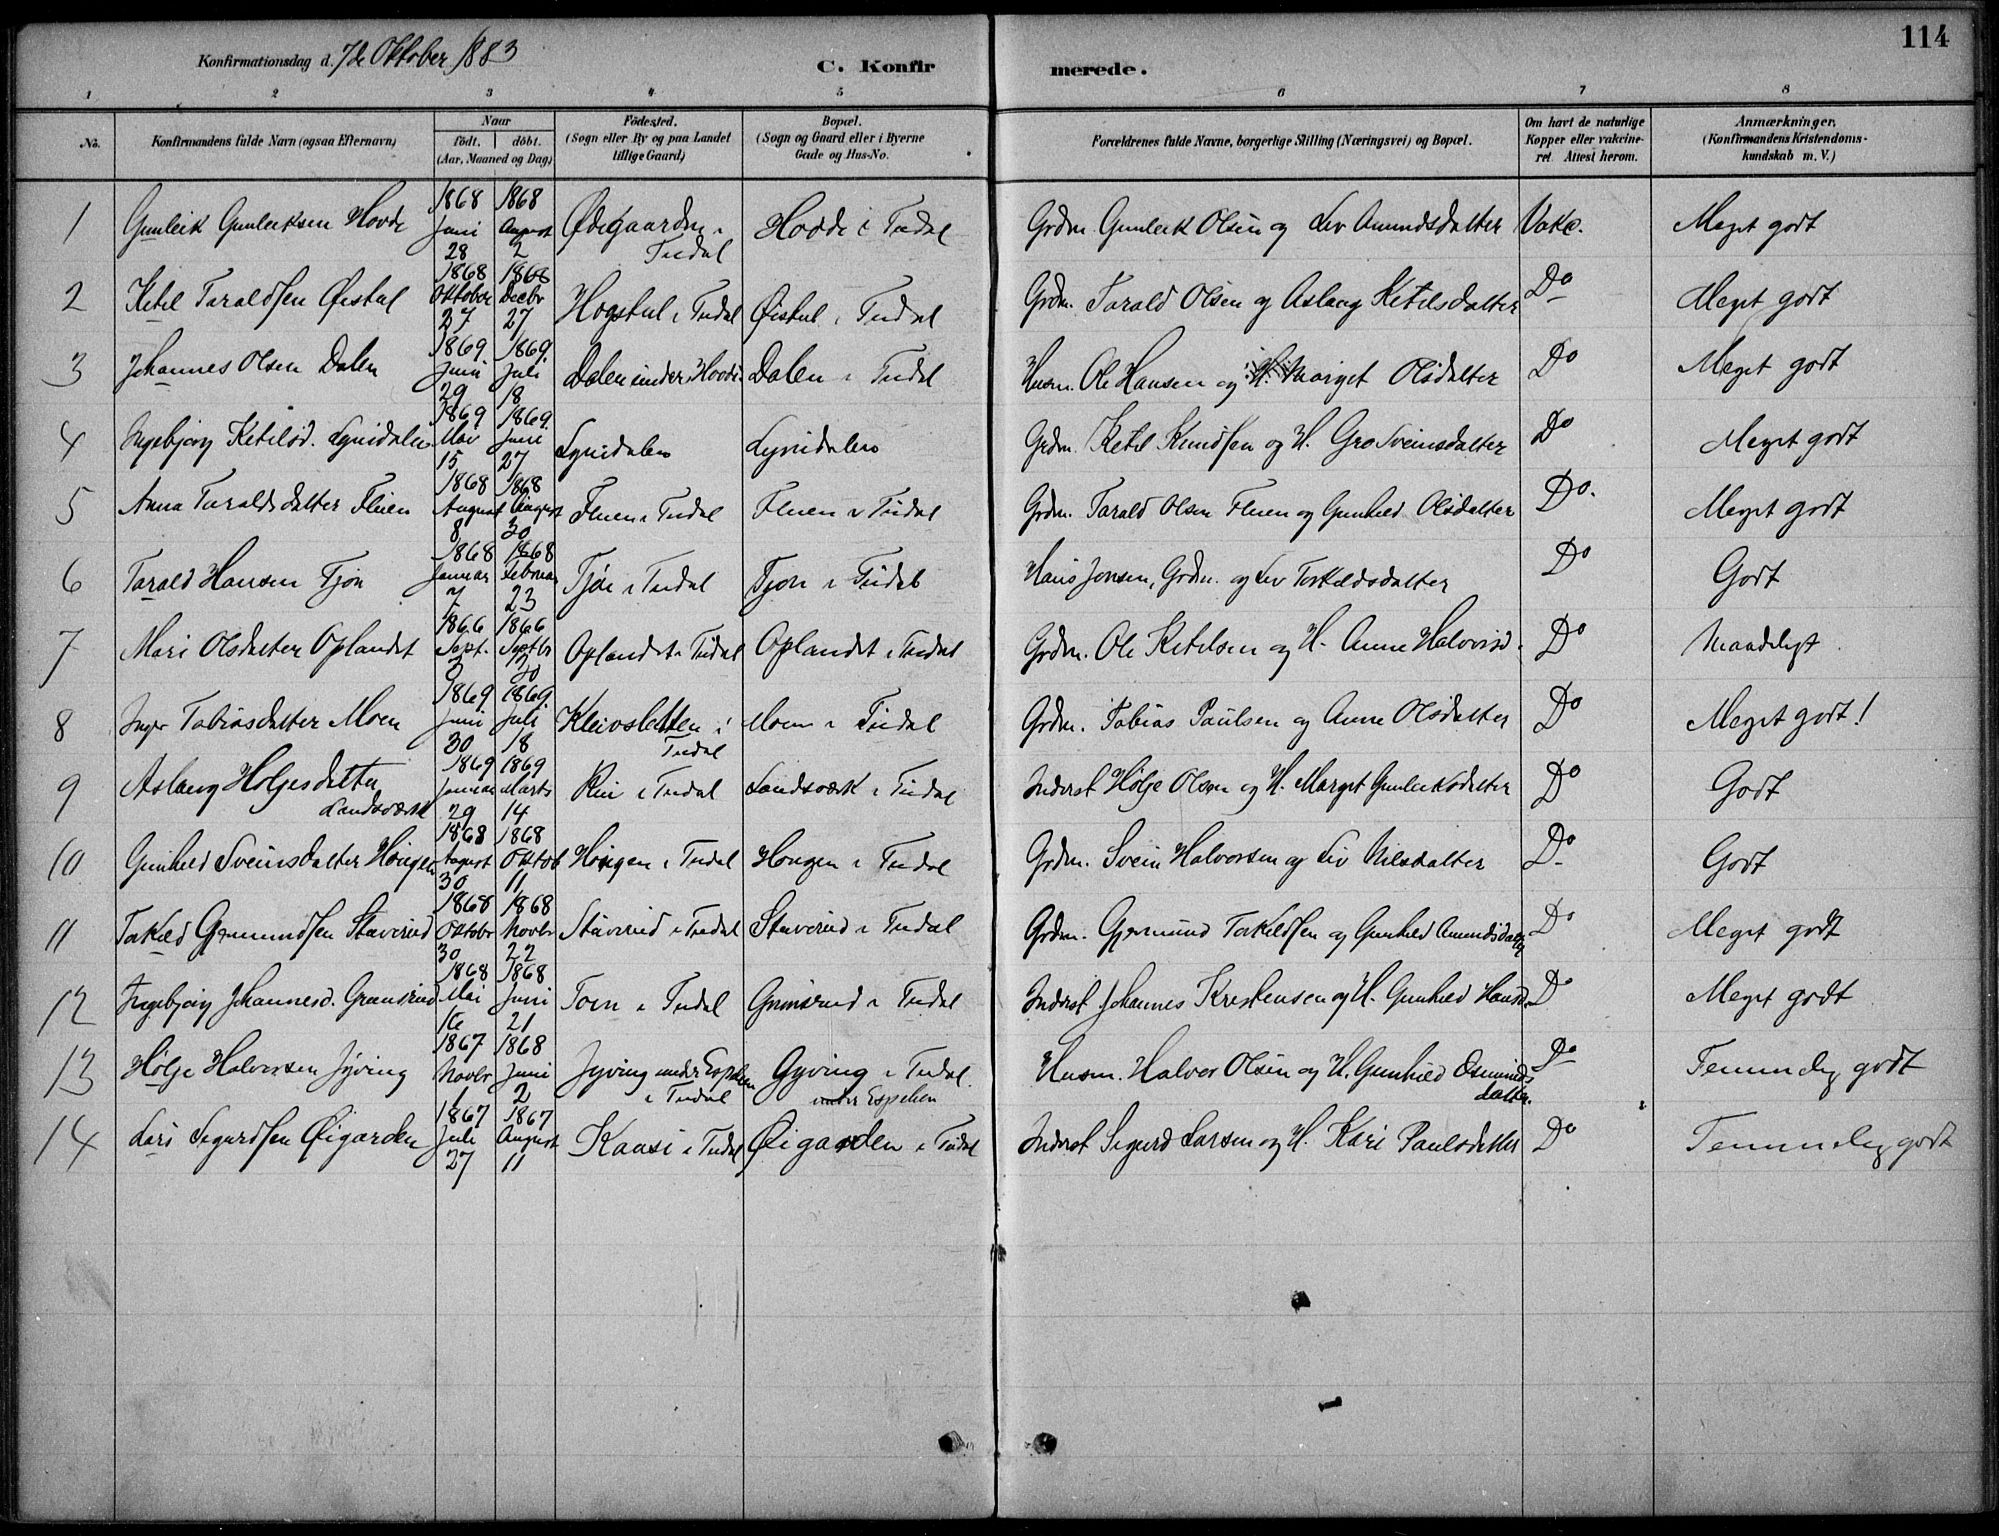 114
Konfirmationsdag d. 7de Oktober 1883
C. Konfirmerede.
1 2 3 4 5 6 7 8
No. Konfirmandens fulde Navn (ogsaa Efternavn) Naar født, døbt. (Aar, Maaned og Dag) Fødested. (Sogn eller By og paa Landet tillige Gaard) Bopæl. (Sogn og Gaard eller i Byerne Gade og Hus-No. Forældrenes fulde Navne, borgerlige Stilling (Næringsvei) og Bopæl. Om havt de naturlige Kopper eller vakcineret. Attest herom. Anmærkninger. (Konfirmandens Kristendomskundskab m. V.)
1 Gunleik Gunleiksen Hovde 1868 Juni 28 1868 August 2 Ødegaarden i Tudal Hovde i Tudal Grdm. Gunleik Olsen og Liv Amundsdatter Vakc. Meget godt
2 Ketil Taraldsen Øistul 1868 Oktober 27 1868 Decbr 27 Hogstul i Tudal Øistul i Tudal Grdm. Tarald Olsen og Aslaug Ketilsdatter Do Meget godt
3 Johannes Olsen Dalen 1869 Juni 29 1869 Juli 18 Dalen under Hovde Dalen i Tudal Husm. Ole Hansen og H. Marget Olsdatter Do Meget godt
4 Ingebjørg Ketilsd. Lynidalen 1869 Mai 15 1869 Juni 27 Lynidalen Lynidalen Grdm. Ketil Knudsen og H. Gro Sveinsdatter Do Meget godt
5 Anna Taraldsdatter Fluen 1868 August 8 1868 August 30 Fluen i Tudal Fluen i Tudal Grdm. Tarald Olsen Fluen og Gunhild Olsdatter Do. Meget godt
6 Tarald Hansen Tjøn 1868 Januar 7 1868 Februar 23 Tjøn i Tudal Tjøn i Tudal Hans Jonsen, Grdm. og Liv Torkildsdatter Do Godt
7 Mari Olsdatter Oplandet 1866 Sept. 1866 Septbr 30 Oplandet i Tudal Oplandet i Tudal Grdm. Ole Ketilsen og H. Anne Halvorsd. Do Maadeligt
8 Inger Tobiasdatter Moen 1869 Juni 30 1869 Juli 18 Kleivsletten i Tudal Moen i Tudal Grdm. Tobias Paulsen og Anne Olsdatter Do Meget godt!
9 Aslaug Holgesdatter Landsværk 1869 Januar 29 1869 Marts 14 Rui i Tudal Landsværk i Tudal Inderst Hølje Olsen og H. Marget Gunleiksdatter Do Godt
10 Gunhild Sveinsdatter Haugen 1868 August 30 1868 Oktob 11 Haugen i Tudal Haugen i Tudal Grdm. Svein Halvorsen og Liv Nilsdatter Do Godt
11 Torkild Gjermundsen Staverud 1868 Oktobr 30 1868 Novbr 22 Staverud i Tudal Staverud i Tudal Grdm. Gjermund Torkildsen og Gunhild Amundsdatter Do Meget godt
12 Ingebjørg Johannesd. Gransrud 1868 Mai 16 1868 Juni 21 Toen i Tudal Grinsrud i Tudal Inderst Johannes Kristensen og H. Gunhild Hansd. Do Meget godt
13 Hølje Halvorsen Jyving 1867 Novbr 1 1868 Juni 2 Jyving under Espelien i Tudal Gyving i Tudal. under Espelien Husm. Halvor Olsen og H. Gunhild Osmundsdatter. Do Temmelig godt
14 Lars Sigurdsen Øigarden 1867 Juli 27 1867 August 11 Kaasi i Tudal Øigarden i Tudal Inderst Sigurd Larsen og H. Kari Paulsdatter Do Temmelig godt